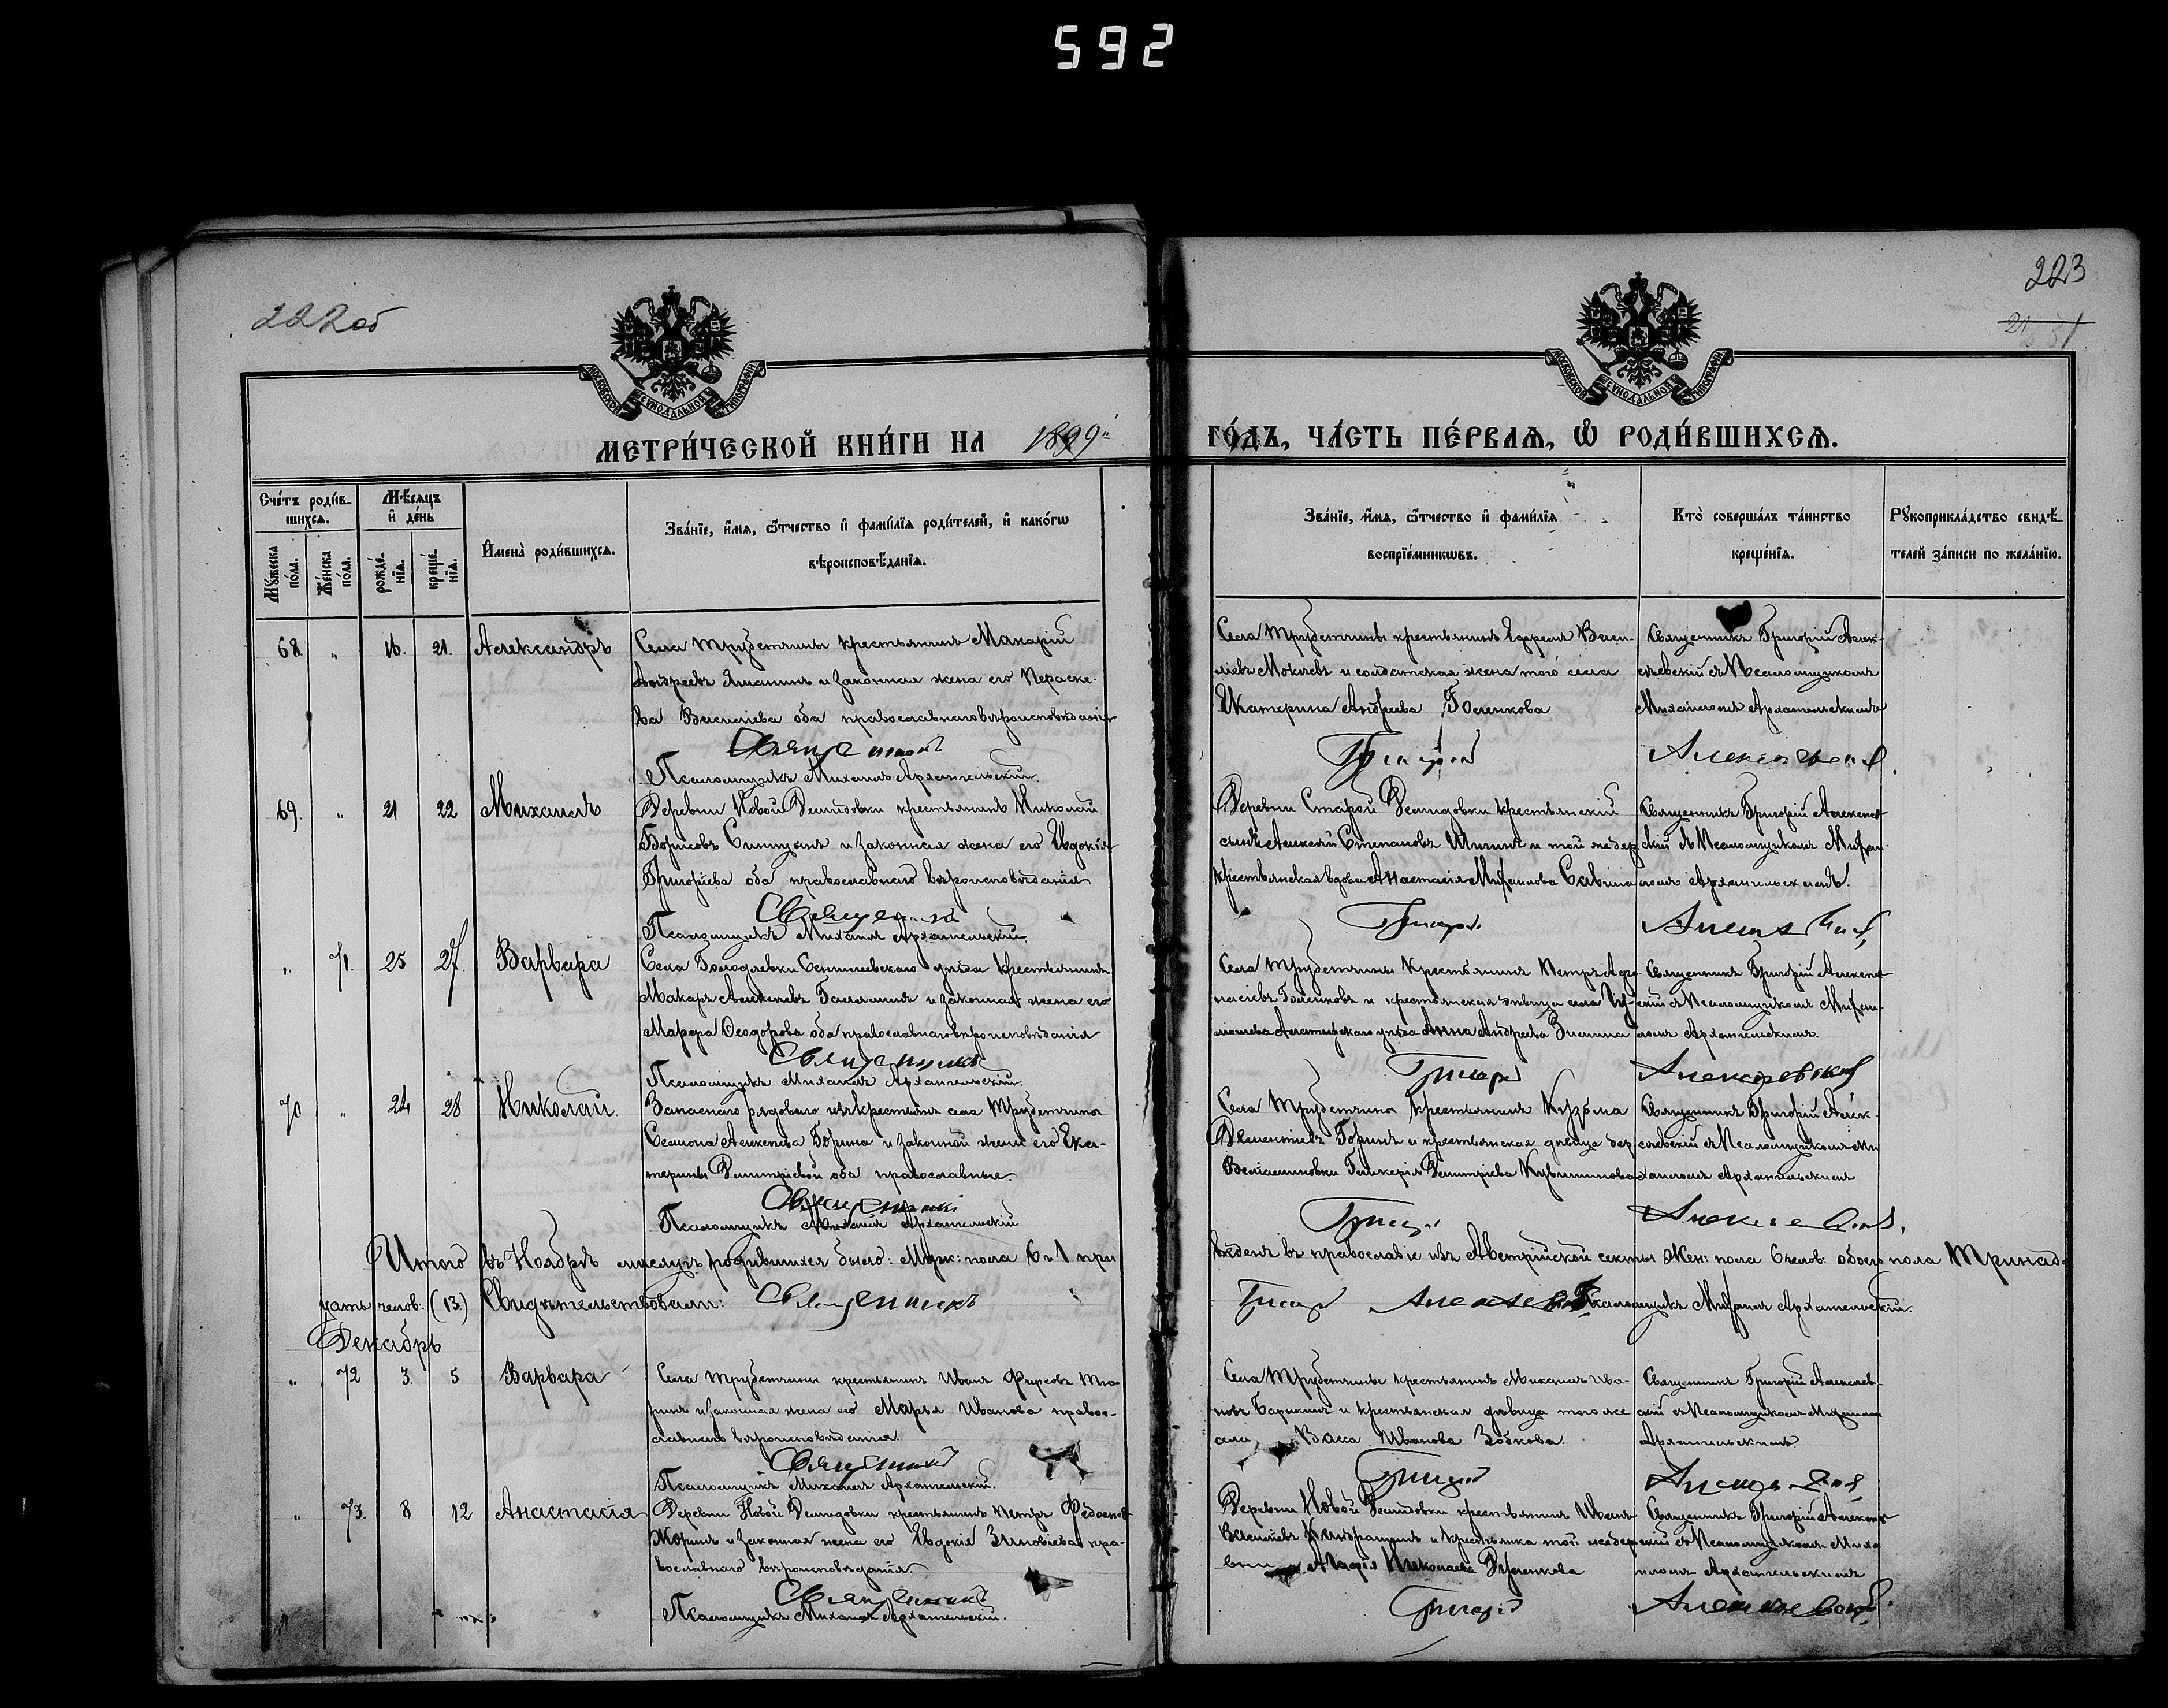 592
222 об
223
МОСКОВСКОЙ СѴНОДАЛЬНОЙ ТИПОГРАФІИ
МОСКОВСКОЙ СѴНОДАЛЬНОЙ ТИПОГРАФІИ
МЕТРИ́ЧЕСКОЙ КНИ́ГИ НА 1899 ГО́ДЪ, ЧА́СТЬ ПЕ́РВАЯ, Ѡ҆ РОДИ́ВШИХСЯ.
Сче́тъ роди́вшихся.
Мѣ́сяцъ и҆ де́нь
Мꙋ́жеска по́ла.
Же́нска по́ла.
рожде́нїя.
креще́нїя.
И҆мена̀ роди́вшихся.
Зва́нїе, и҆́мя, ѻ҆́тчество и҆ фами́лїя роди́телей, и҆ како́гѡ
вѣроисповѣ́данїя.
Зва́нїе, и҆́мя, ѻ҆́тчество и҆ фами́лїя
воспрїе́мникѡвъ.
Кто̀ соверша́лъ та́инство
креще́нїя.
Рꙋкоприкла́дство свидѣ́телей за́писи по жела́нїю.
68. " 16. 21. Александръ
Села Трубетчины крестьянинъ Макарій
Андреевъ и законная жена его Параске-
ва Васильева оба православнаго вѣроисповѣданія
Священникъ
Псаломщикъ Михаилъ Архангельскій.
Села Трубетчины крестьянинъ Ефремъ Васи-
льевъ и солдатская жена того села
Екатерина Андреева Голенкова
Григорій
Священникъ Григорій Алек-
сѣевскій съ Псаломщикомъ
Михаиломъ Архангельскимъ
Алексѣевскій
69. " 21 22 Михаилъ
Деревни Новой Демидовки крестьянинъ Николай
Борисовъ Синицынъ и законная жена его Евдокія
Григорьева оба православнаго вѣроисповѣданія
Священникъ
Псаломщикъ Михаилъ Архангельскій.
Деревни Старой Демидовки крестьянскій
сынъ Алексѣй Степановъ Шишинъ и той же дер.
крестьянская вдова Анастасія Михаилова Савина
Григорій
Священникъ Григорій Алексѣев-
скій съ Псаломщикомъ Михаи-
ломъ Архангельскимъ.
Алексѣевскій
" 71. 25 27. Варвара
Села уѣзда крестьянинъ
Макаръ Алексѣевъ и законная жена его
Марфа Ѳеодорова оба православнаго вѣроисповѣданія
Священникъ
Псаломщикъ Михаилъ Архангельскій.
Села Трубетчины крестьянинъ Петръ Аѳа-
насьевъ Голенковъ и крестьянская дѣвица села
уѣзда Анна Андреева Зимина
Григорій
Священникъ Григорій Алексѣев-
скій съ Псаломщикомъ Михаи-
ломъ Архангельскимъ.
Алексѣевскій
70 " 24 28 Николай.
Запаснаго рядоваго изъ крестьянъ села Трубетчина
Семіона Алексѣева Горина и законной жены его Ека-
терины Димитріевой оба православные.
Священникъ
Псаломщикъ Михаилъ Архангельскій
Села Трубетчина крестьянинъ Кузьма
Горинъ и крестьянская дѣвица дер.
Гликерія Димитріева
Григорій
Священникъ Григорій Алек-
сѣевскій съ Псаломщикомъ Ми-
хаиломъ Архангельскимъ
Алексѣевскій.
Итого въ Ноябрѣ мѣсяцѣ родившихся было: Муж: пола 6 и 1 при
веденъ въ православіе изъ Австрійской секты Жен: пола 6 челов: обоего пола Тринад-
цать челов: (13.) Свидѣтельствовали: Священникъ Григорій Алексѣевскій Псаломщикъ Михаилъ Архангельскій.
Декабрь
" 72 3. 5 Варвара
Села Трубетчины крестьянинъ Иванъ Фирсовъ Тю-
ринъ и законная жена его Марья Иванова правос-
лавнаго вѣроисповѣданія.
Священникъ
Псаломщикъ Михаилъ Архангельскій.
Села Трубетчины крестьянинъ Михаилъ Ива-
новъ Барыкинъ и крестьянская дѣвица того же
села Васса Иванова Зобкова.
Григорій
Священникъ Григорій Алексѣев-
скій съ Псаломщикомъ Михаиломъ
Архангельскимъ.
Алексѣевскій
" 73. 8 12 Анастасія
Деревни Новой Демидовки крестьянинъ Петръ
и законная жена его Евдокія Зиновіева пра-
вославнаго вѣроисповѣданія.
Священникъ
Псаломщикъ Михаилъ Архангельскій.
Деревни Новой Демидовки крестьянинъ Иванъ
Васильевъ Кандрашинъ и крестьянка той же дер-
вни Николаева
Григорій
Священникъ Григорій Алексѣев-
скій съ Псаломщикомъ Миха-
иломъ Архангельскимъ
Алексѣевскій.